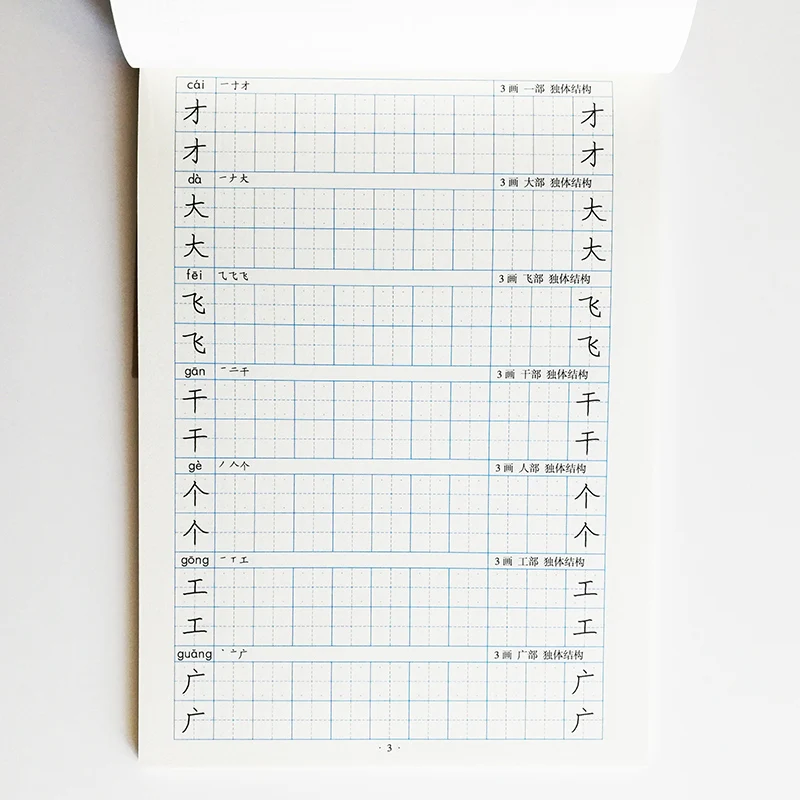 cái 一十才 3画 一部 独体结构
才 才
才 才
dà 一ナ大 3画 大部 独体结构
大 大
大 大
fēi 乁飞飞 3画 飞部 独体结构
飞 飞
飞 飞
gān 一二干 3画 干部 独体结构
干 干
干 干
gè 丿人个 3画 人部 独体结构
个 个
个 个
gōng 一丅工 3画 工部 独体结构
工 工
工 工
guǎng 丶亠广 3画 广部 独体结构
广 广
广 广
· 3 ·